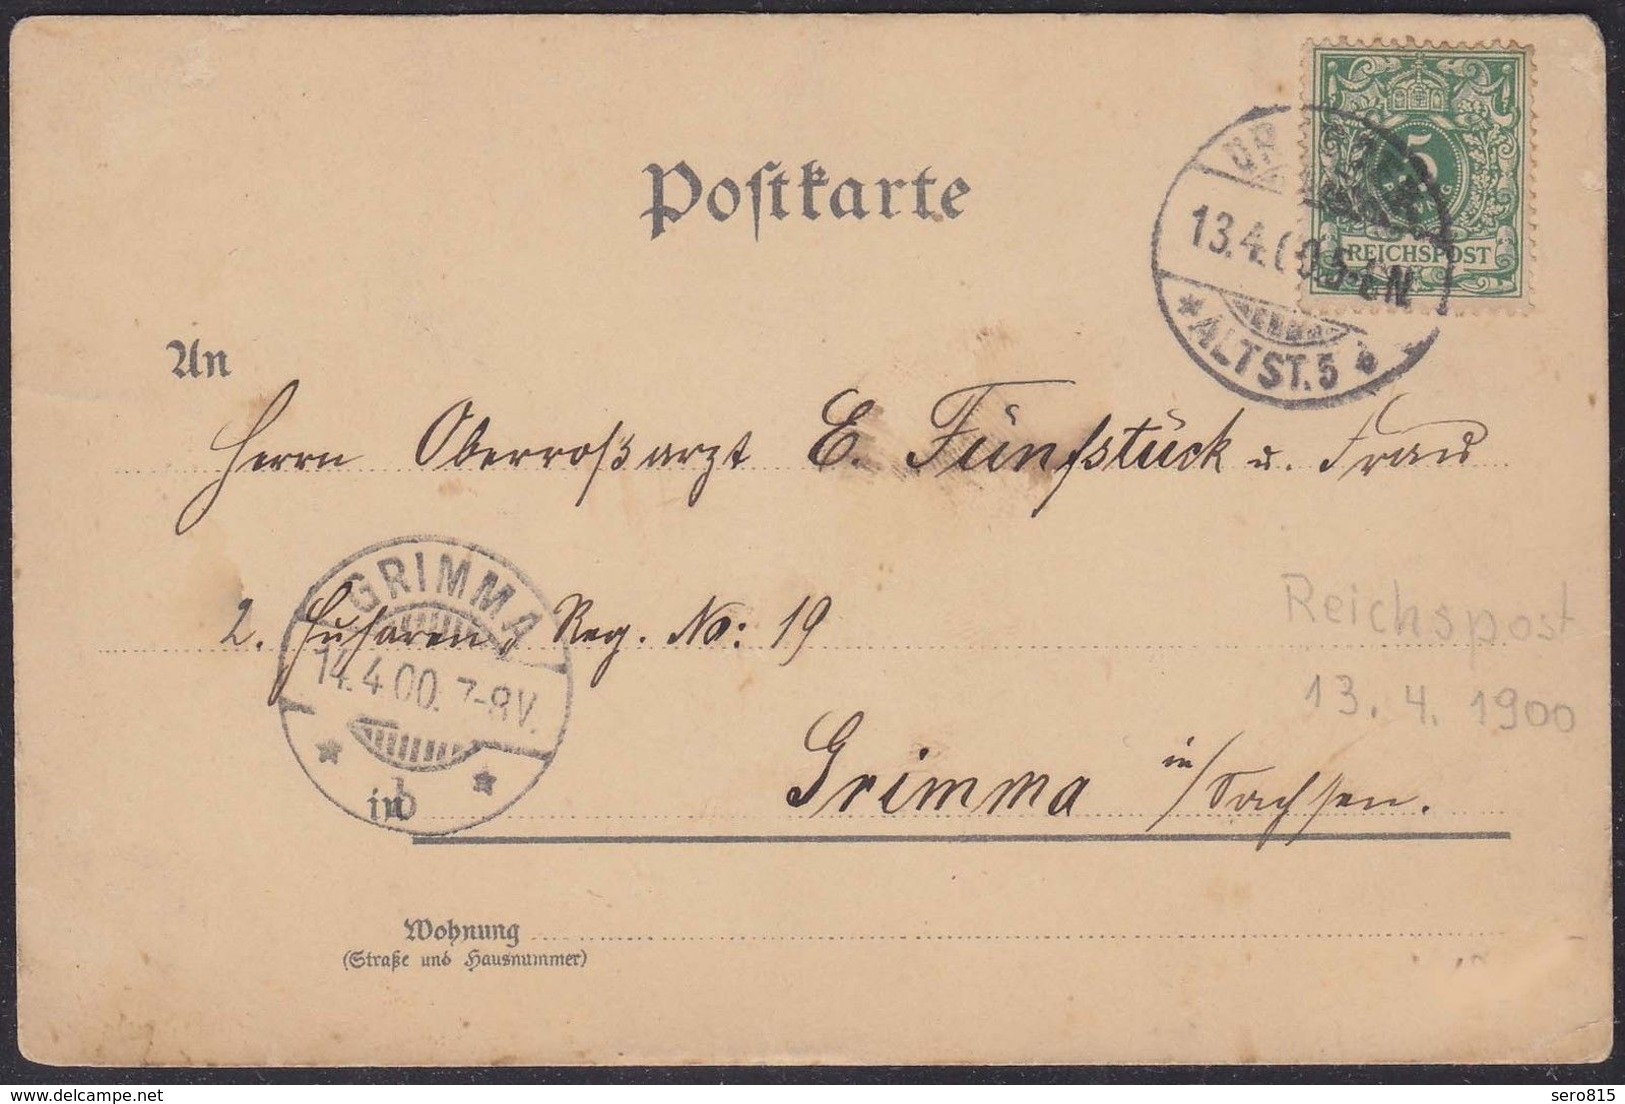 Postkarte
5
REICHSPOST
13.4.00.5-6N
* ALTST.5 b
An
Herrn Oberroßarzt E. Fünfstück u. Frau
GRIMMA
2. Husaren Reg. No: 19
Reichspost
14.4.00.7-8V.
13. 4. 1900
Grimma in/Sachsen.
* b *
in
Wohnung
(Straße und Hausnummer)
delcampe.net
sero815